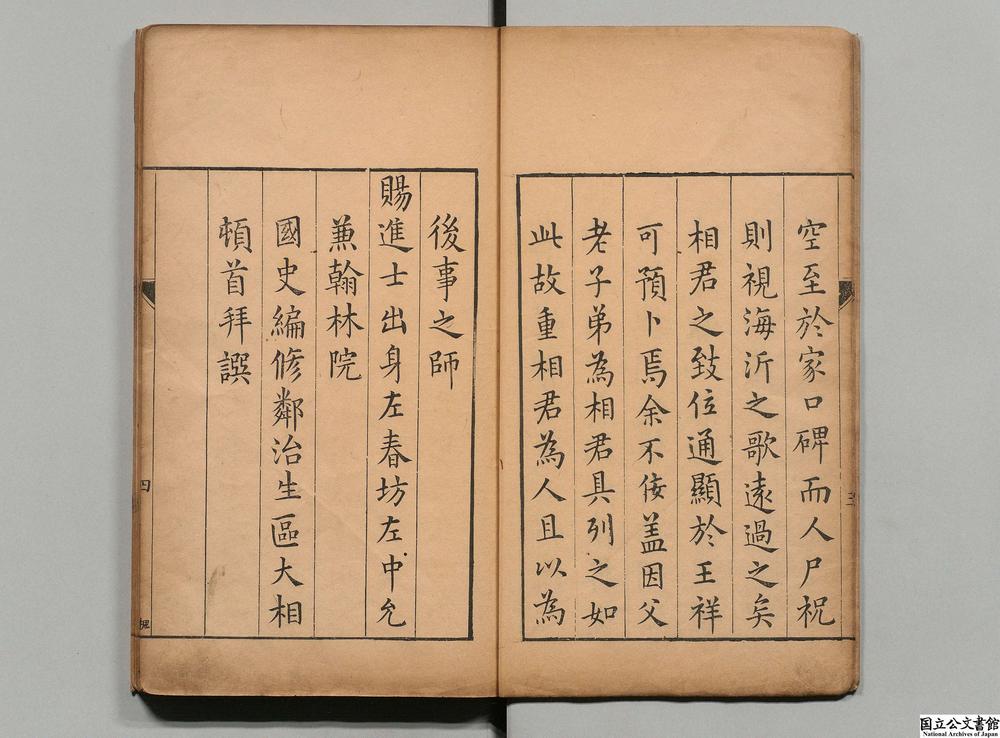 空至於家口碑而人尸祝
則視海沂之歌遠過之矣
相君之致位通顯於王祥
可預卜焉余不佞盖因父
老子弟為相君具列之如
此故重相君為人且以為
三
後事之師
賜進士出身左春坊左中允
兼翰林院
國史編修鄰治生區大相
頓首拜譔
四
國立公文書館
National Archives of Japan